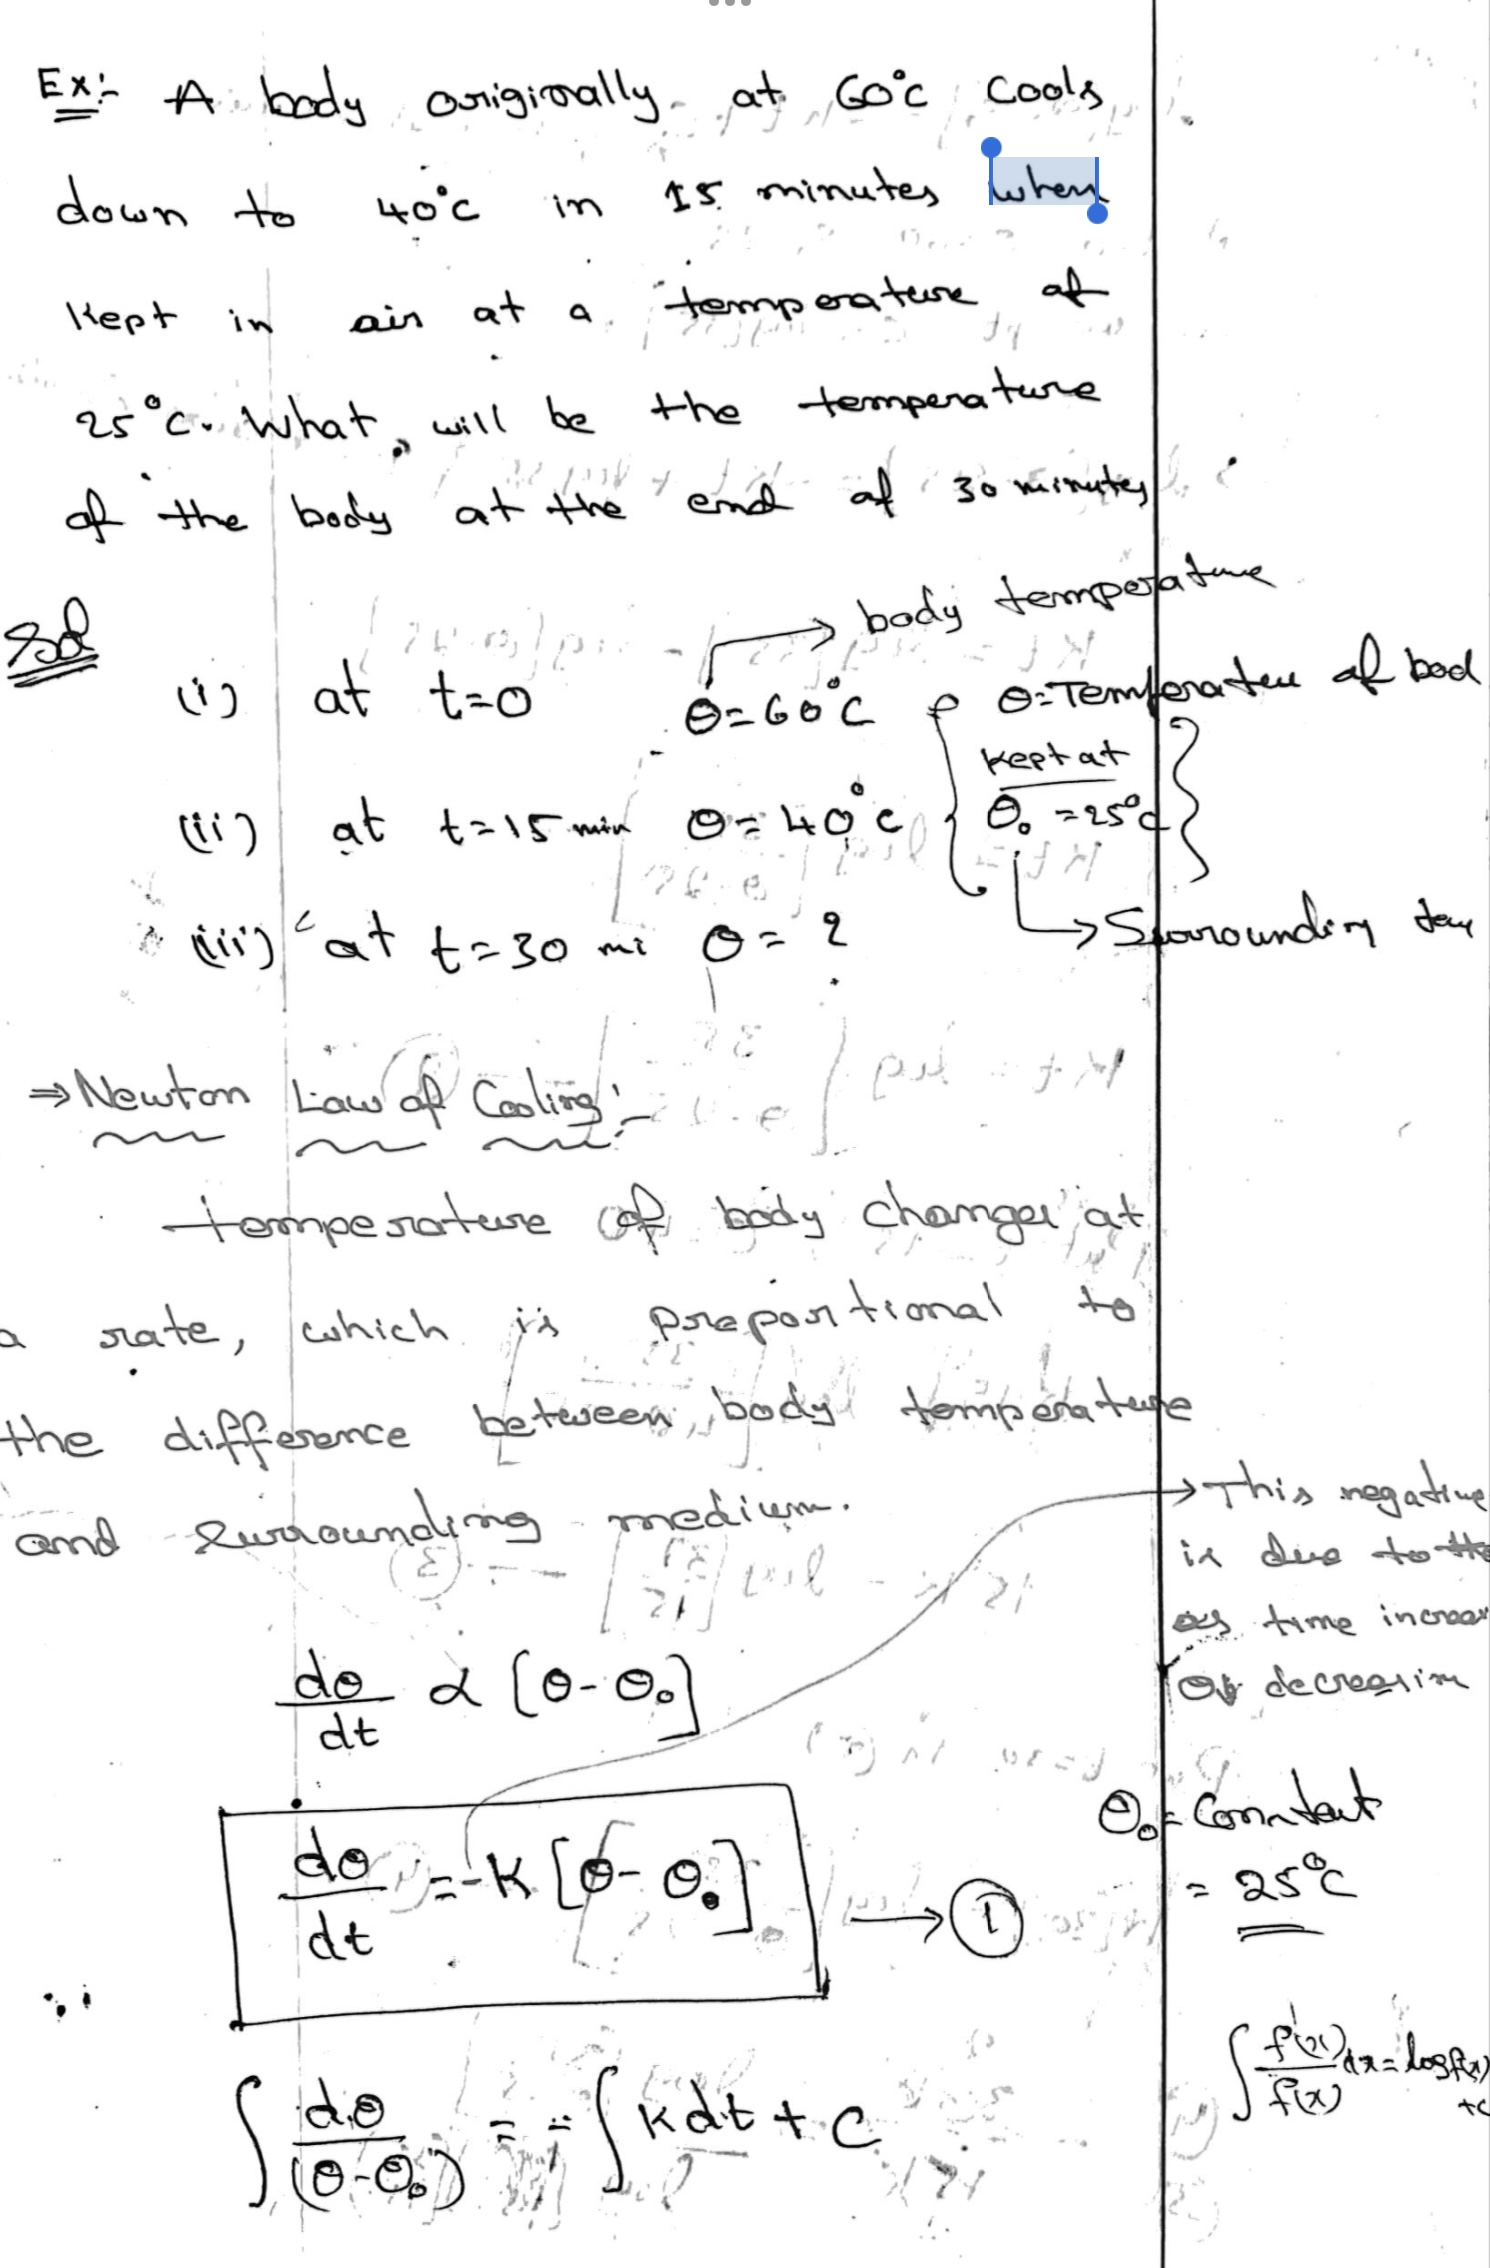 Ex:- A body originally at 60°C cools
down to 40°C in 15 minutes when
kept in air at a temperature of
25°C. What will be the temperature
of the body at the end of 30 minutes
Sol
body temperature
(i) at t=0 θ=60°C θ=Temperateu of bod
kept at
(ii) at t=15 min θ=40°C θ₀=25°C
(iii) at t=30 mi θ=?
→ Surrounding tem
⇒ Newton Law of Cooling:-
temperature of body changes at
a rate, which is proportional to
the difference between body temperature
and surrounding medium.
→ This negative
is due to the
as time increas
decreasin
dθ/dt ∝ [θ-θ₀]
θ₀ = Constant
= 25°C
dθ/dt = -K[θ-θ₀] → ①
∫ f'(x)/f(x) dx = log f(x) +c
∫ dθ/(θ-θ₀) = - ∫ k dt + C